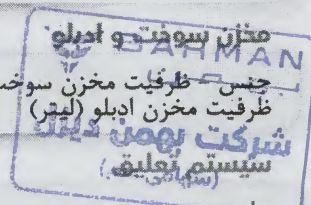 مخزن سوخت و ادبلو
BAHMAN
جنس - ظرفیت مخزن سوخت
ظرفیت مخزن ادبلو (لیتر)
شرکت بهمن دیزل
سیستم تعلیق
(سهامی